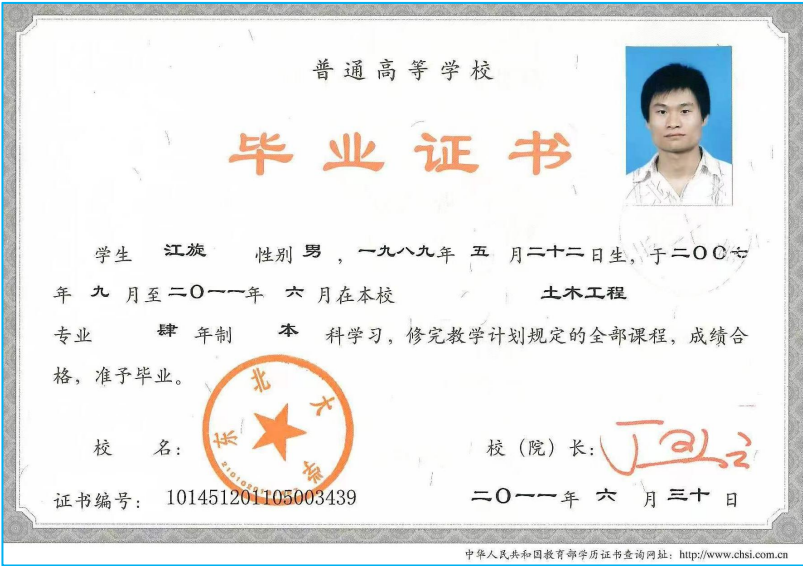 普通高等学校
毕业证书
学生 江旋 性别 男 ,一九八九年 五 月二十二日生,于二〇〇七
年 九 月至二〇一一年 六 月在本校 土木工程
专业 肆 年制 本 科学习,修完教学计划规定的全部课程,成绩合
格,准予毕业。
东北大学
校 名: 校(院)长:
证书编号: 101451201105003439 二〇一一年 六 月 三十 日
中华人民共和国教育部学历证书查询网址:http://www.chsi.com.cn